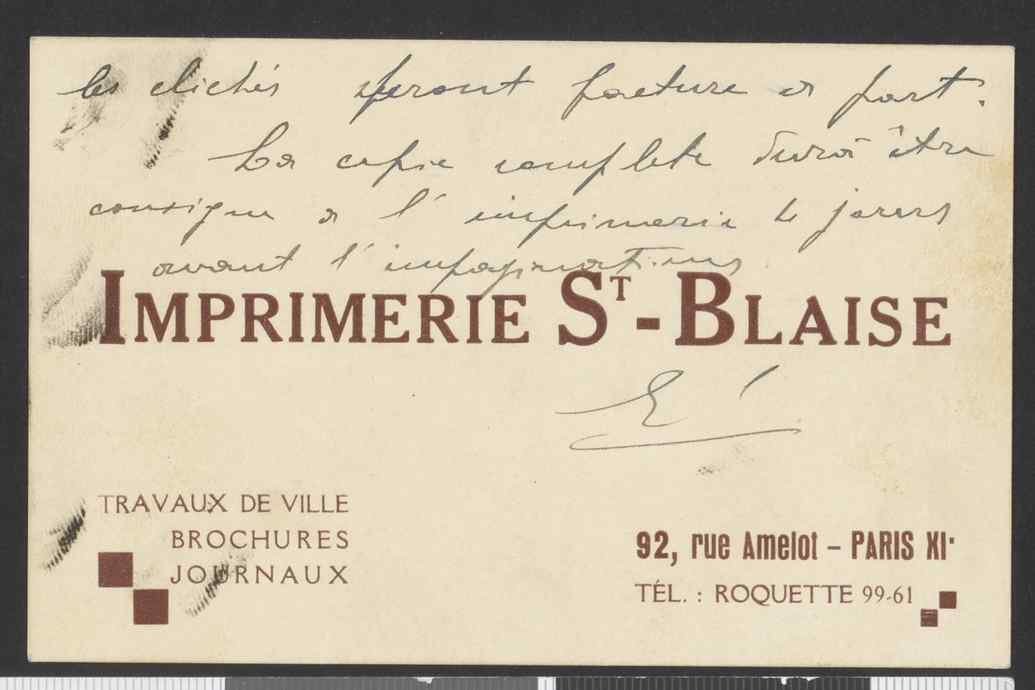 les clichés seront facture a part.
La copie complete devra être
consigne a l'imprimerie 4 jours
avant l'impaginations
IMPRIMERIE ST-BLAISE
TRAVAUX DE VILLE
BROCHURES
JOURNAUX
92, rue Amelot – PARIS XI·
TÉL. : ROQUETTE 99-61